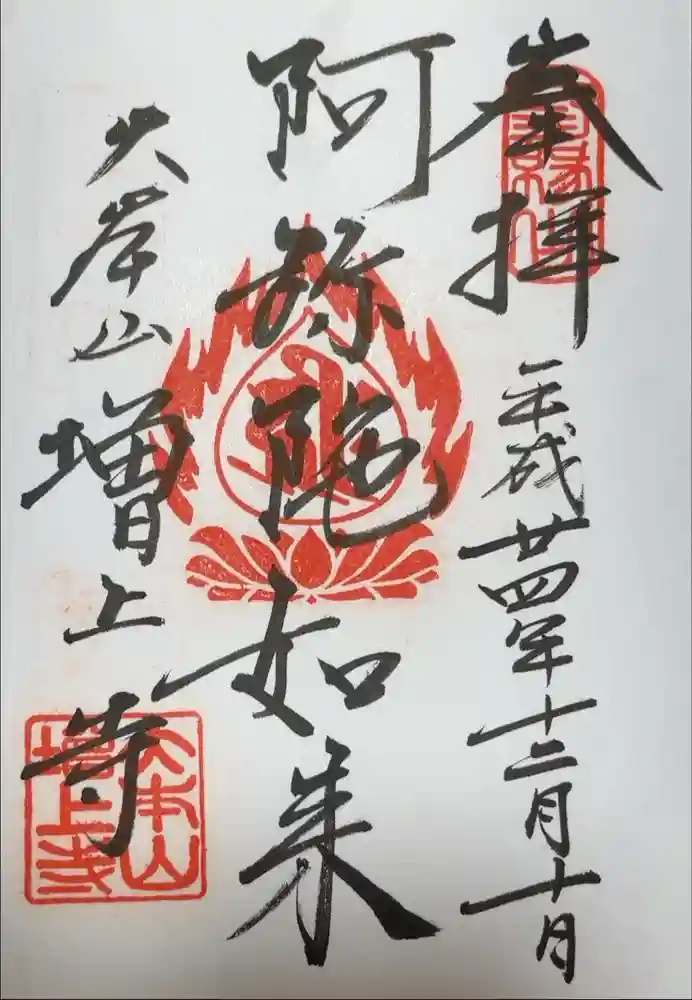 奉拝
平成廿四年十二月十日
阿弥陀如来
大本山増上寺
大本山
増上寺